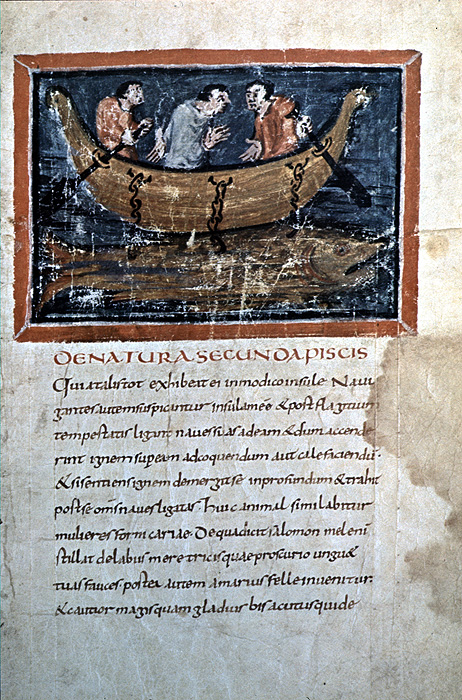 DE NATURA SECUNDA PISCIS
Qui atalistot exhibet ei inmodico insule Naui
gantes autem suspicantur insulam eē & post flagitium
tempestatis ligant naues suas ad eam & dum accende
rint ignem sup eam ad coquendum aut calefaciendū
& si senti ens ignem demergit se in profundum & trahit
post se oms naues ligatas huic animal simil abitur
mulieres fornicariae De qua dicit salomon mel enī
stillat de labiis meretricis quae pro scurio unguet
tuas fauces postea autem amarius felle inuenitur
& cautior magis quam gladius bis acutus qui de